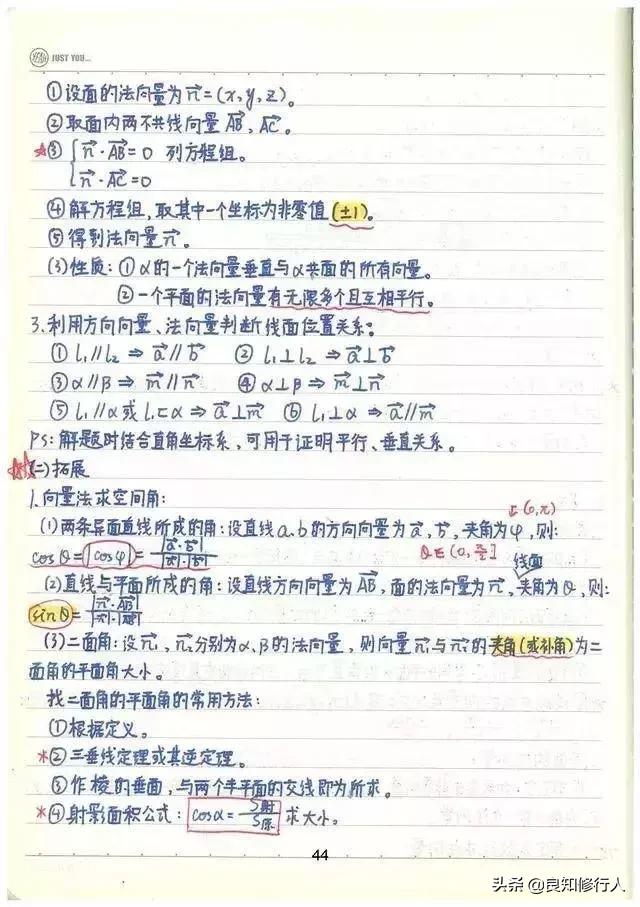 JUST YOU...
①设面的法向量为n⃗=(x,y,z)。
②取面内两不共线向量AB⃗,AC⃗。
③{n⃗·AB⃗=0 列方程组。
n⃗·AC⃗=0
④解方程组,取其中一个坐标为非零值(±1)。
⑤得到法向量n⃗。
(3)性质:①α的一个法向量垂直与α共面的所有向量。
②一个平面的法向量有无限多个且互相平行。
3.利用方向向量、法向量判断线面位置关系:
①l₁∥l₂⇒a⃗∥b⃗ ②l₁⊥l₂⇒a⃗⊥b⃗
③α∥β⇒m⃗∥n⃗ ④α⊥β⇒m⃗⊥n⃗
⑤l₁∥α或l₁⊂α⇒a⃗⊥m⃗ ⑥l₁⊥α⇒a⃗∥m⃗
PS:解题时结合直角坐标系,可用于证明平行、垂直关系。
(二)拓展
1.向量法求空间角:
(0,π)
(1)两条异面直线所成的角:设直线a、b的方向向量为a⃗,b⃗,夹角为φ,则:
cosθ=|cosφ|=|a⃗·b⃗|/|a⃗|·|b⃗| θ∈(0,π/2]
线面
(2)直线与平面所成的角:设直线方向向量为AB⃗,面的法向量为n⃗,夹角为θ,则:
sinθ=|n⃗·AB⃗|/|n⃗|·|AB⃗|
(3)二面角:设n₁⃗,n₂⃗分别为α、β的法向量,则向量n₁⃗与n₂⃗的夹角(或补角)为二
面角的平面角大小。
找二面角的平面角的常用方法:
①根据定义。
*②三垂线定理或其逆定理。
③作棱的垂面,与两个半平面的交线即为所求。
*④射影面积公式:cosα=S射/S原 求大小。
44
头条 @良知修行人